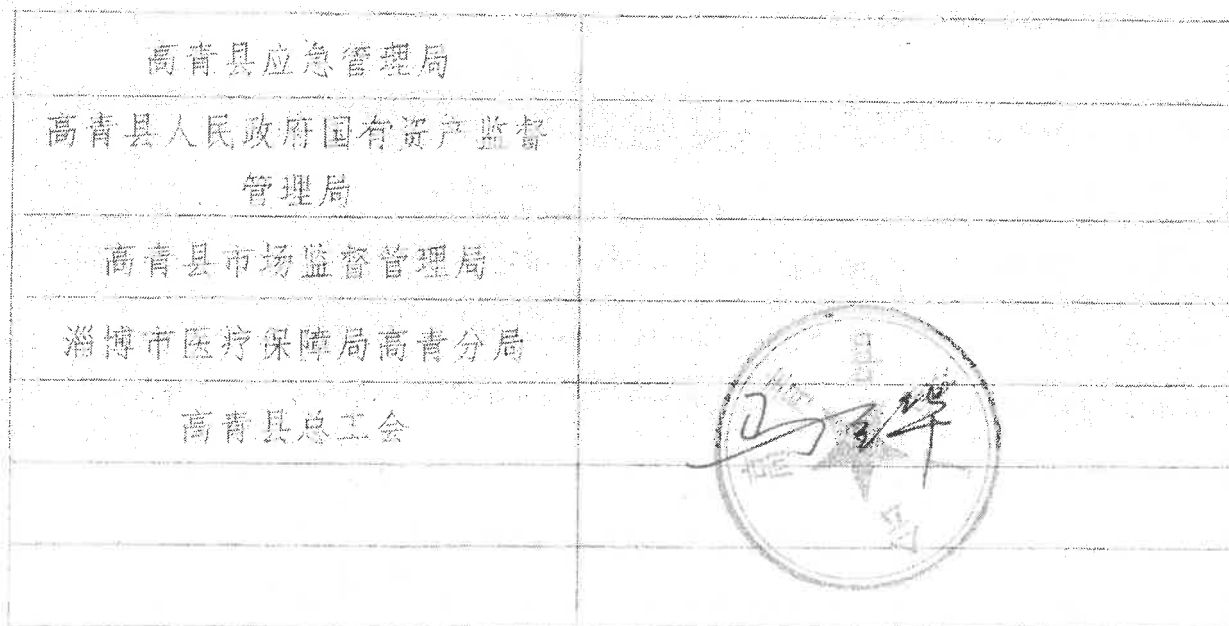 高青县应急管理局
高青县人民政府国有资产监督
管理局
高青县市场监督管理局
淄博市医疗保障局高青分局
高青县总工会